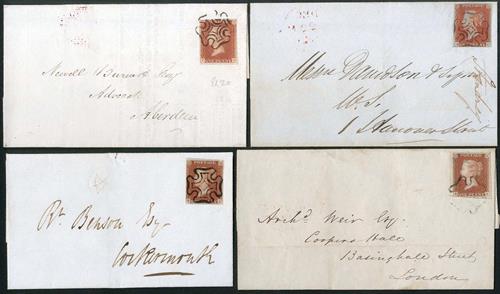 Newell Burnett Esq
Advocate
Aberdeen
Messrs Davidson & Syme
W.S.
1 Hanover Street
POSTAGE
Rt. Benson Esq
Cockermouth
Archd. Weir Esq.
Coopers Hall
Basinghall Street
London